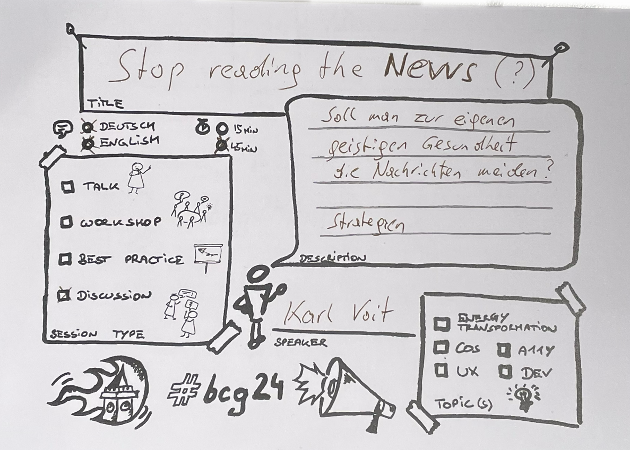 Stop reading the News (?)
TITLE
DEUTSCH
15 MIN
ENGLISH
45 MIN
Soll man zur eigenen
geistigen Gesundheit
die Nachrichten meiden?
Strategien
DESCRIPTION
TALK
WORKSHOP
BEST PRACTICE
DISCUSSION
SESSION TYPE
Karl Voit
SPEAKER
ENERGY
TRANSFORMATION
COS
A11Y
UX
DEV
TOPIC(S)
#bcg24